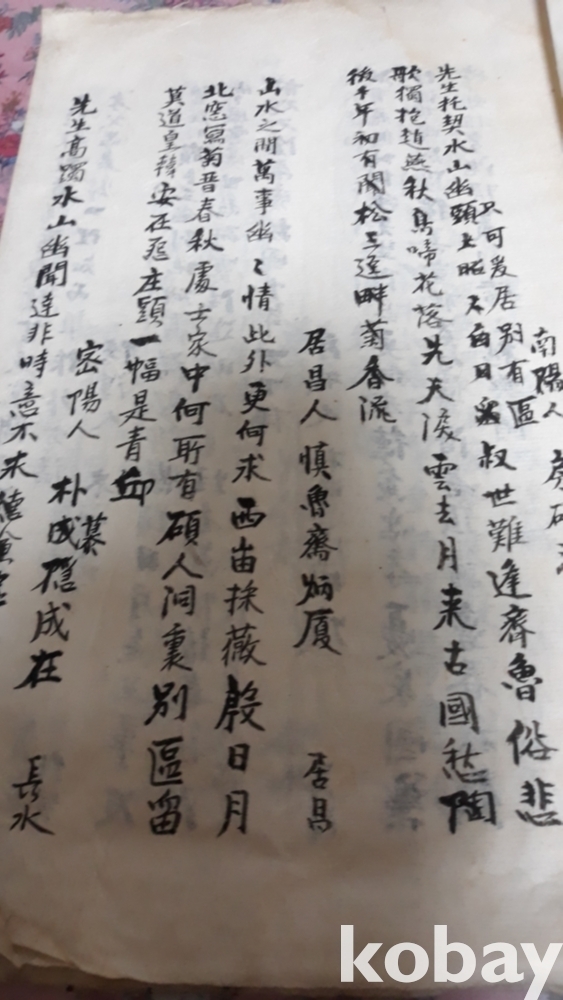 南陽人
只可爰居別有區
先生托契水山幽頭上昭〃白日留叔世難逢齊魯俗悲
歌獨抱趙燕秋鳥啼花落先天淚雲去月来古國愁陶
後千年初有閑松三逕畔菊香流
居昌人 慎魯齋炳厦 居昌
山水之間萬事幽〻情此外更何求西畝採薇殷日月
北窓寫菊晋春秋處士家中何所有碩人洞裏別區留
莫道皇韓安在 庄頭一幅是青邱
密陽人 朴成 成在 長水
先生高躅水山幽聞達非時意不求
kobay